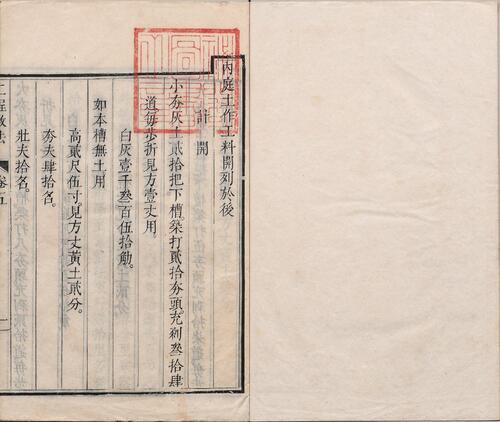 內庭土作工料開列於後
計開
小夯灰土貳拾把下槽築打貳拾夯頭充剁叁拾肆
道每步折見方壹丈用
白灰壹千叁百伍拾觔
如本槽無土用
高貳尺伍寸見方丈黃土貳分
夯夫肆拾名
壯夫拾名
工程做法 卷五 一